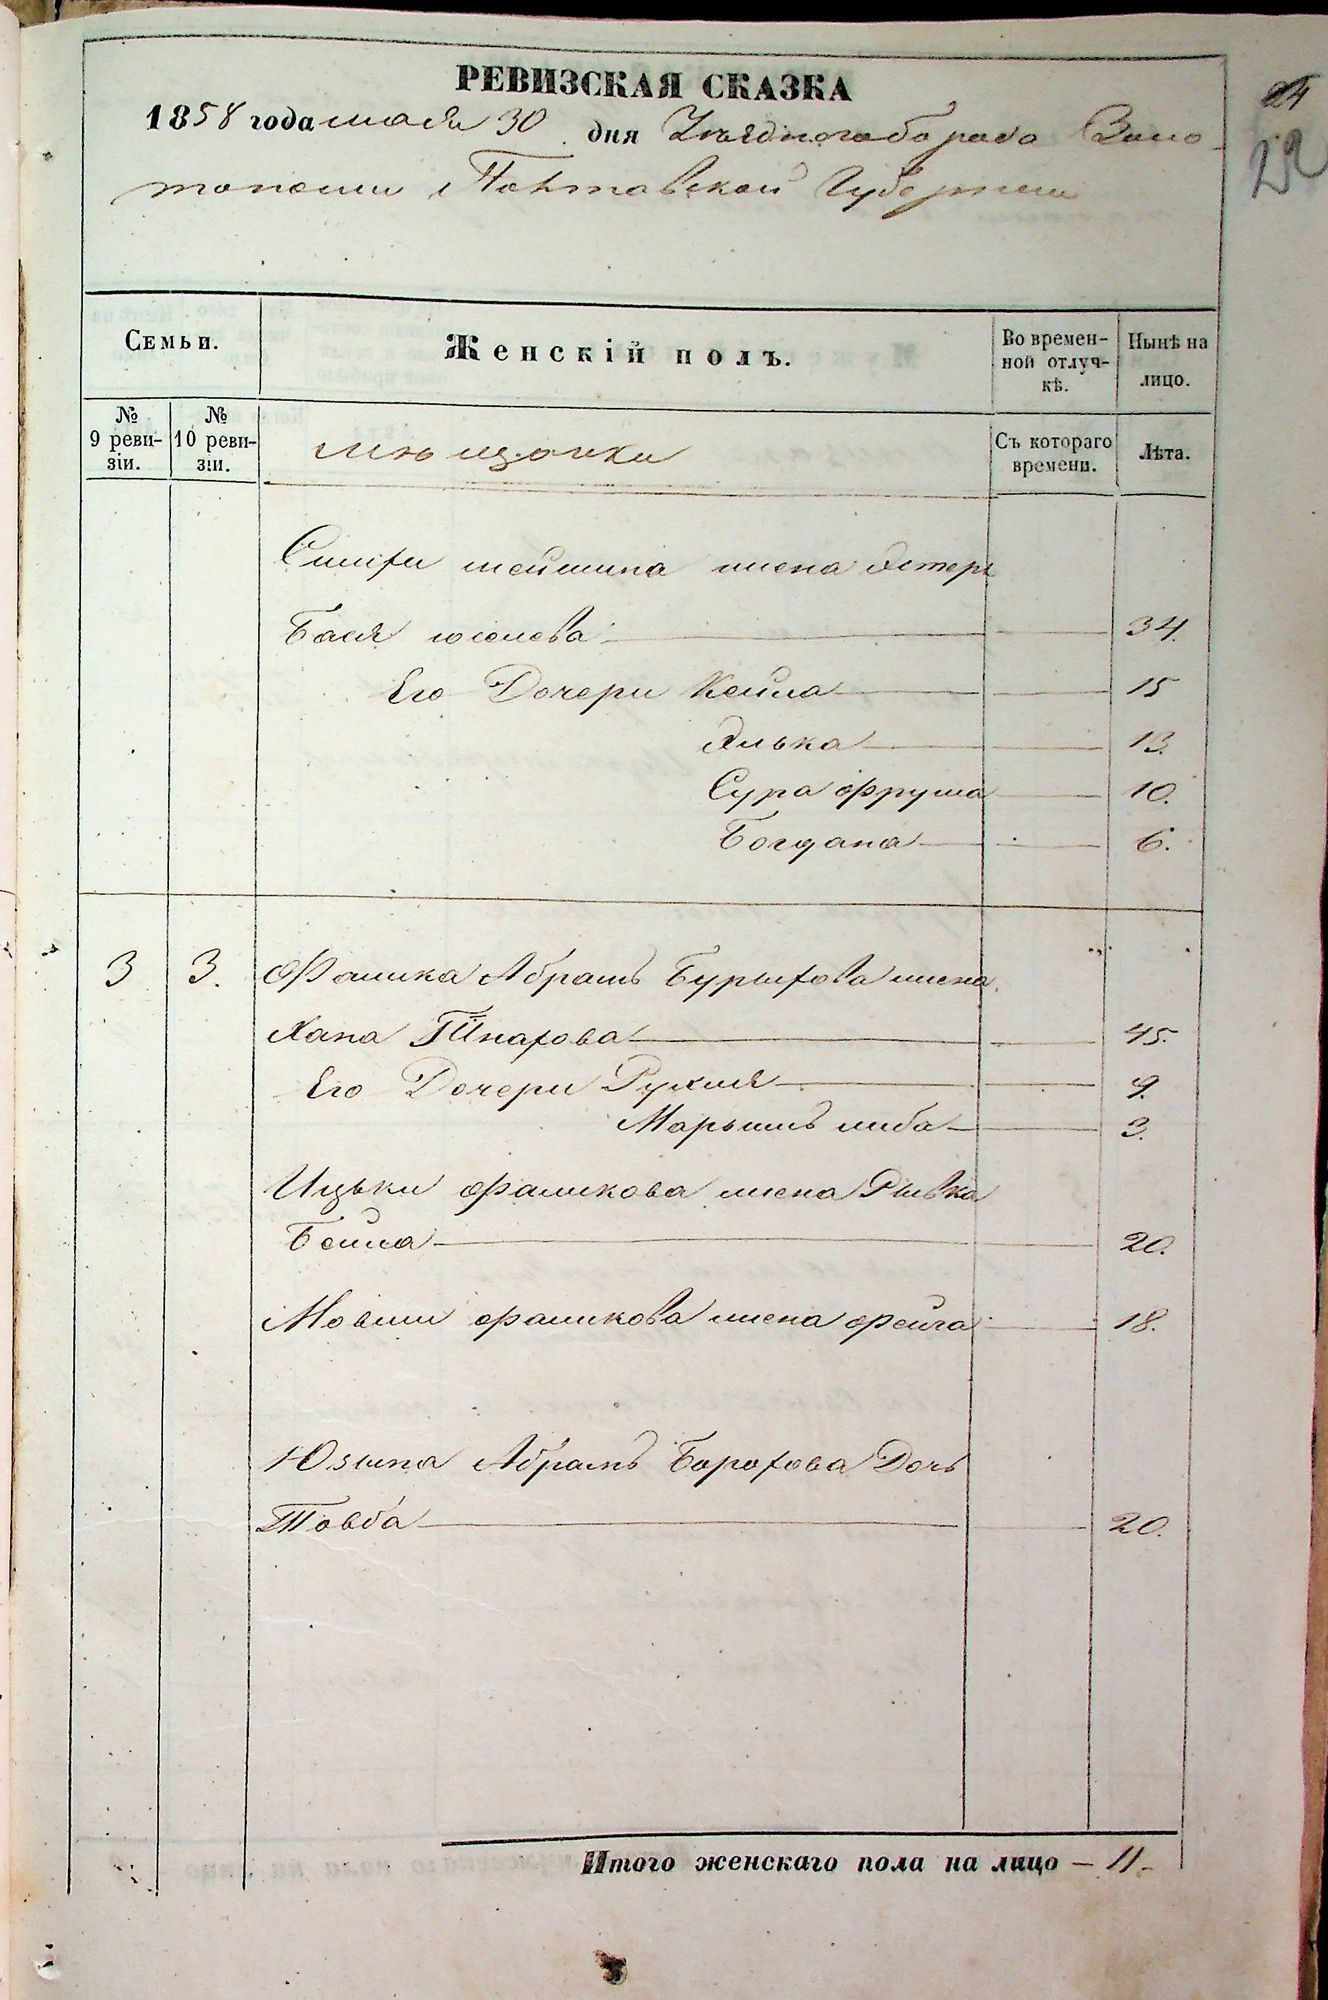 24
22
РЕВИЗСКАЯ СКАЗКА
1858 года мая 30 дня Уѣзднаго города Золо-
тоноши Полтавской Губерніи
Семьи.
Женскій полъ.
Во времен-
ной отлуч-
кѣ.
Нынѣ на
лицо.
№
9 реви-
зіи.
№
10 реви-
зіи.
мѣщанки
Съ котораго
времени.
Лѣта.
жена Эстеръ
Бася 34.
Его Дочери Кейла 15
Элька 13.
Сура Фрума 10.
Богдана 6.
3 3. Фалика Абрамъ Бурыхова жена
Хана 45.
Его Дочери Рухля 9.
Марьямъ Либа 3.
Ицьки Фаликова жена Рывка
Бейла 20.
Мовши Фаликова жена Фейга 18.
Юзыпа Абрамъ Борохова Дочь
Товба 20.
Итого женскаго пола на лицо — 11.